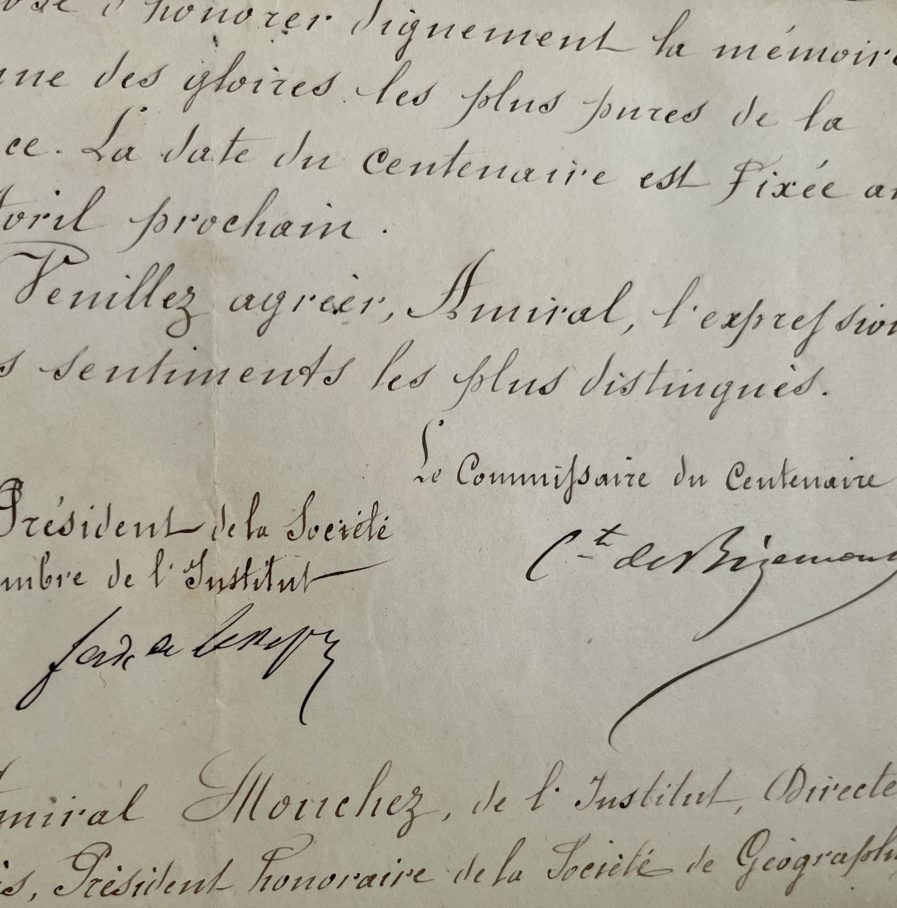 d'honorer dignement la mémoire
des gloires les plus pures de la
ce. La date du Centenaire est fixée au
Avril prochain.
Veuillez agréer, Amiral, l'expression
s sentiments les plus distingués.
Le Commissaire du Centenaire
Président de la Société
mbre de l'Institut
Ct de Bizemont
miral Mouchez, de l'Institut, Directe
is, Président honoraire de la Société de Géographie